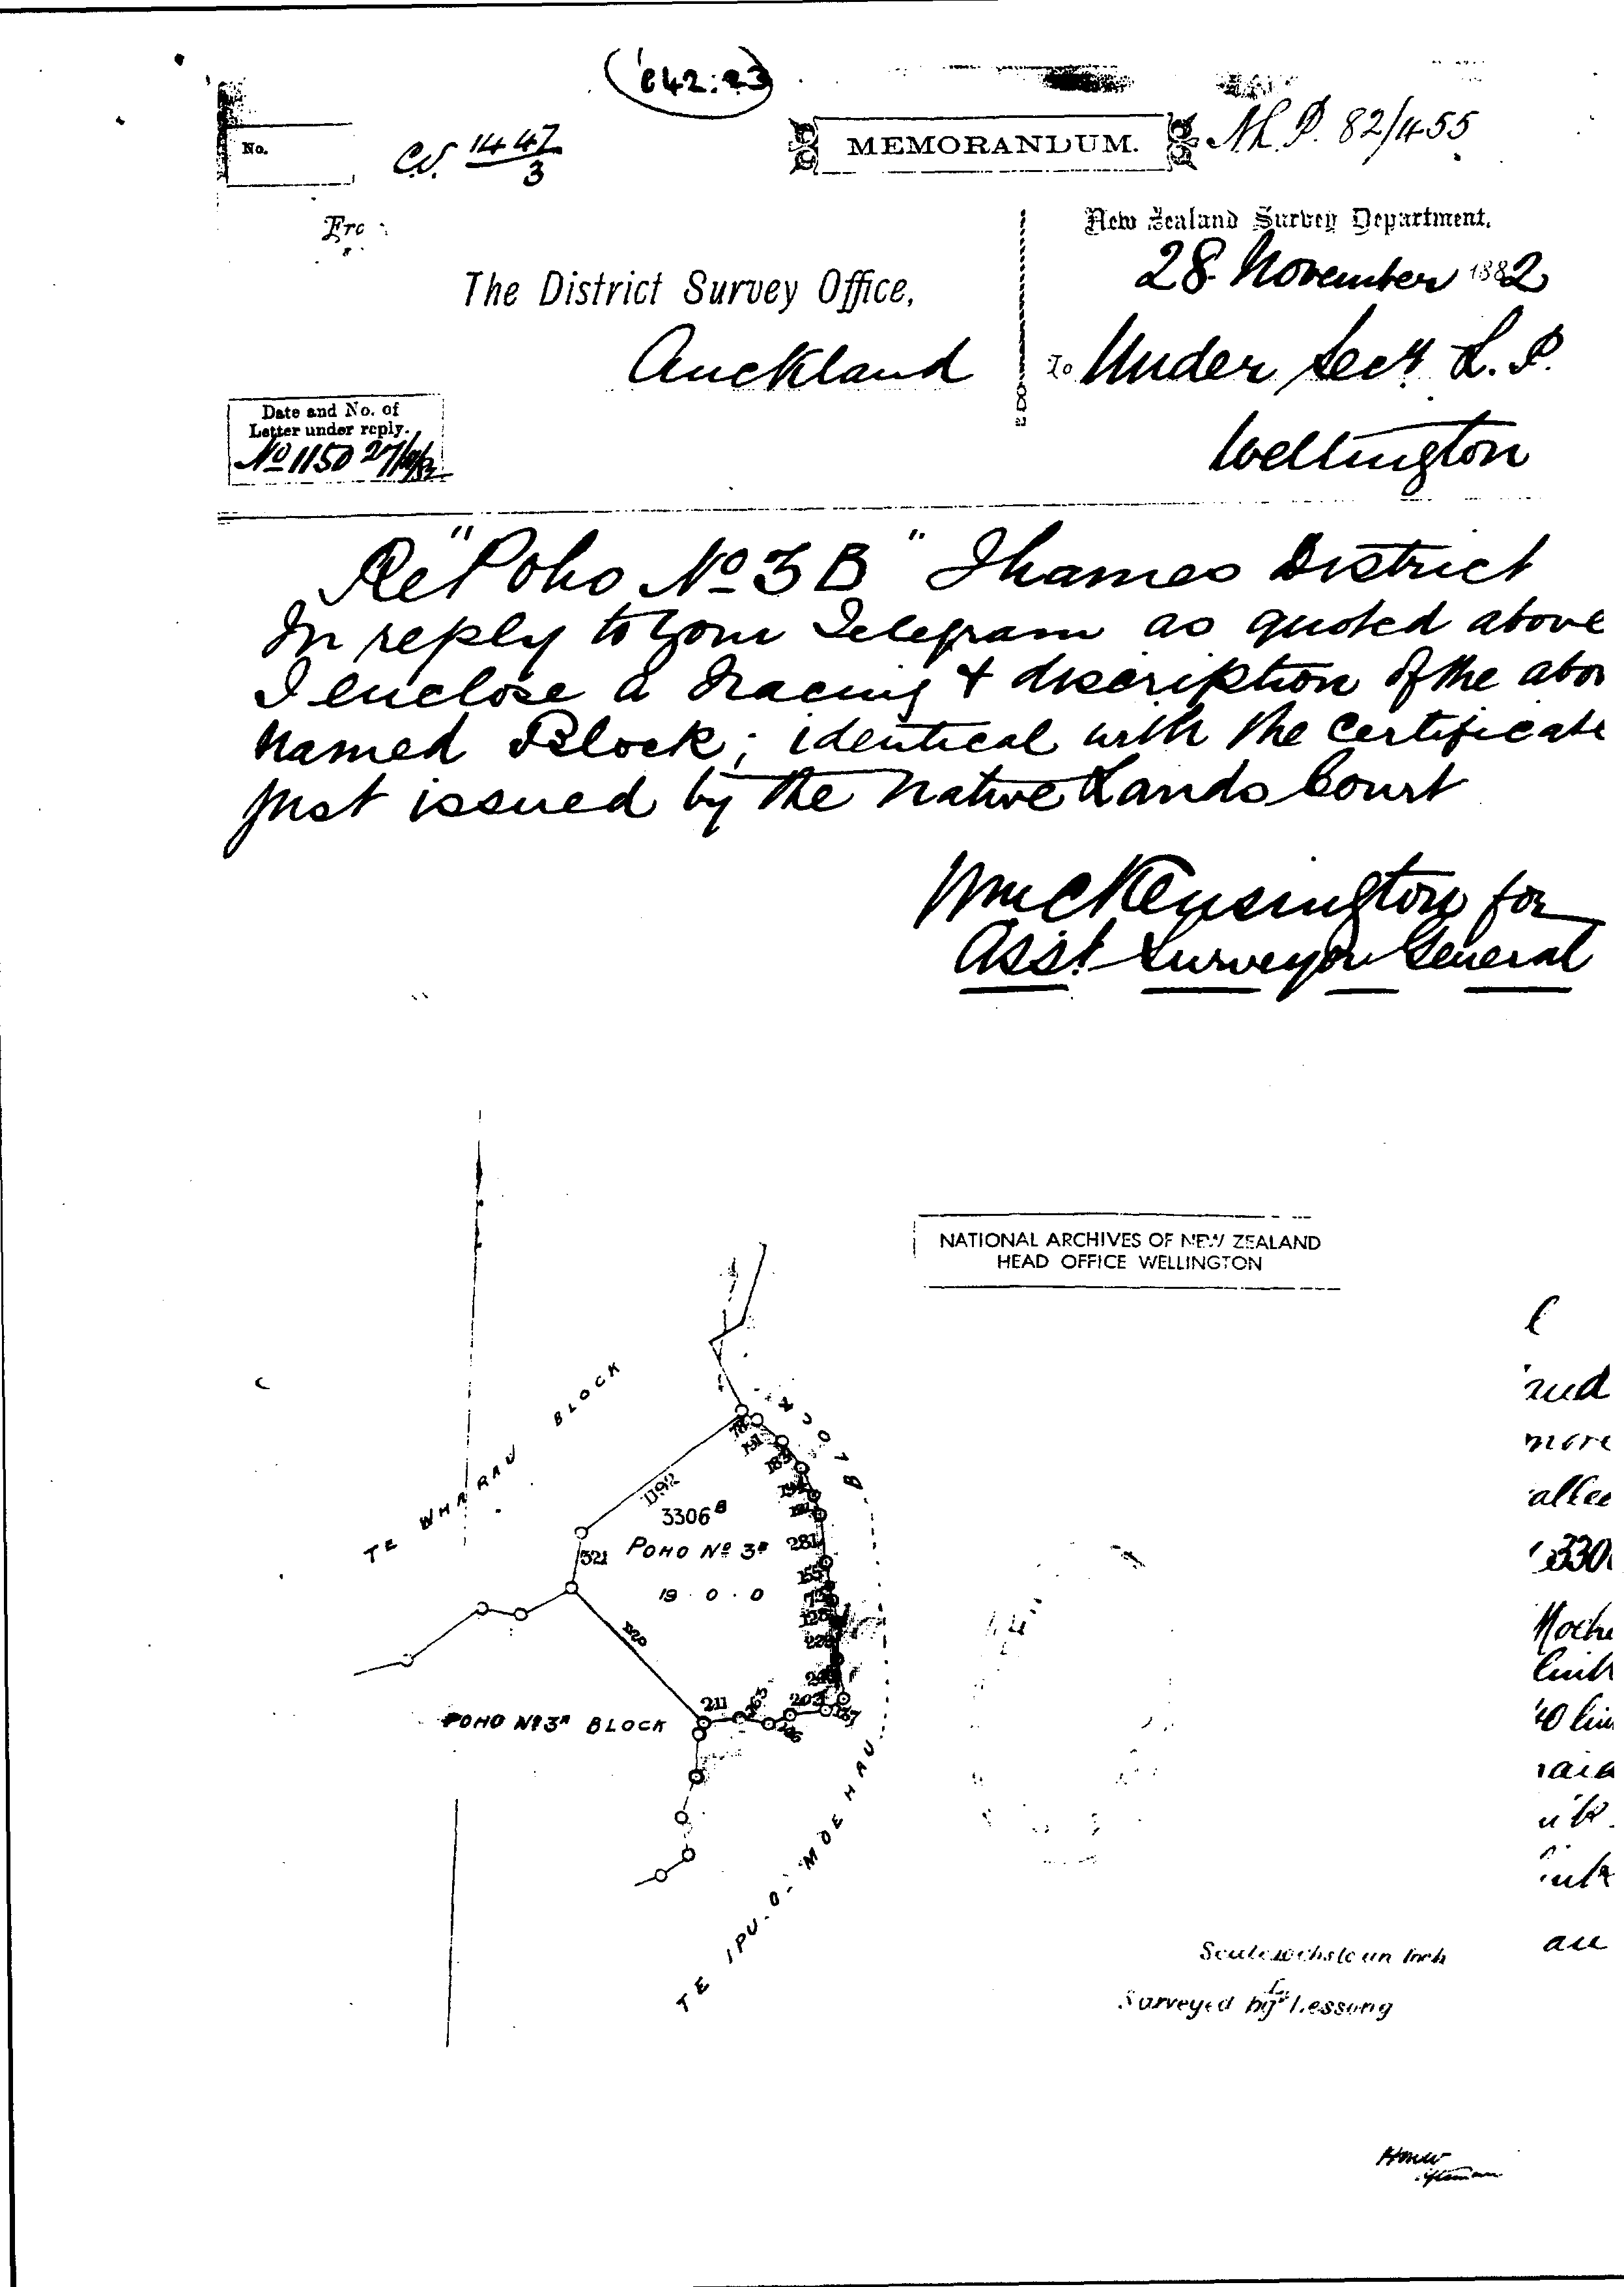 642:23
No.
C.S. 1447/3
MEMORANDUM.
N.L.P. 82/455
From
New Zealand Survey Department,
28 November 1882
The District Survey Office,
Auckland
To Under Secy L.P.
Wellington
Date and No. of
Letter under reply.
No 1150 27/
Re "Poho No 3 B" Thames District
In reply to your Telegram as quoted above
I enclose a Tracing & discription of the abov
named Block; identical with the Certificate
just issued by the Native Lands Court
Kensington for
Asst Surveyor General
NATIONAL ARCHIVES OF NEW ZEALAND
HEAD OFFICE WELLINGTON
and
more
330
TE WHARAU BLOCK
BLOCK
78
191
183
1192
3306 B
POHO No 3B
281
321
19 . 0 . 0
155
1120
211
203
POHO No 3A BLOCK
TE IPU-O-MOEHAU
Scale 10 chs to an Inch
Surveyed by